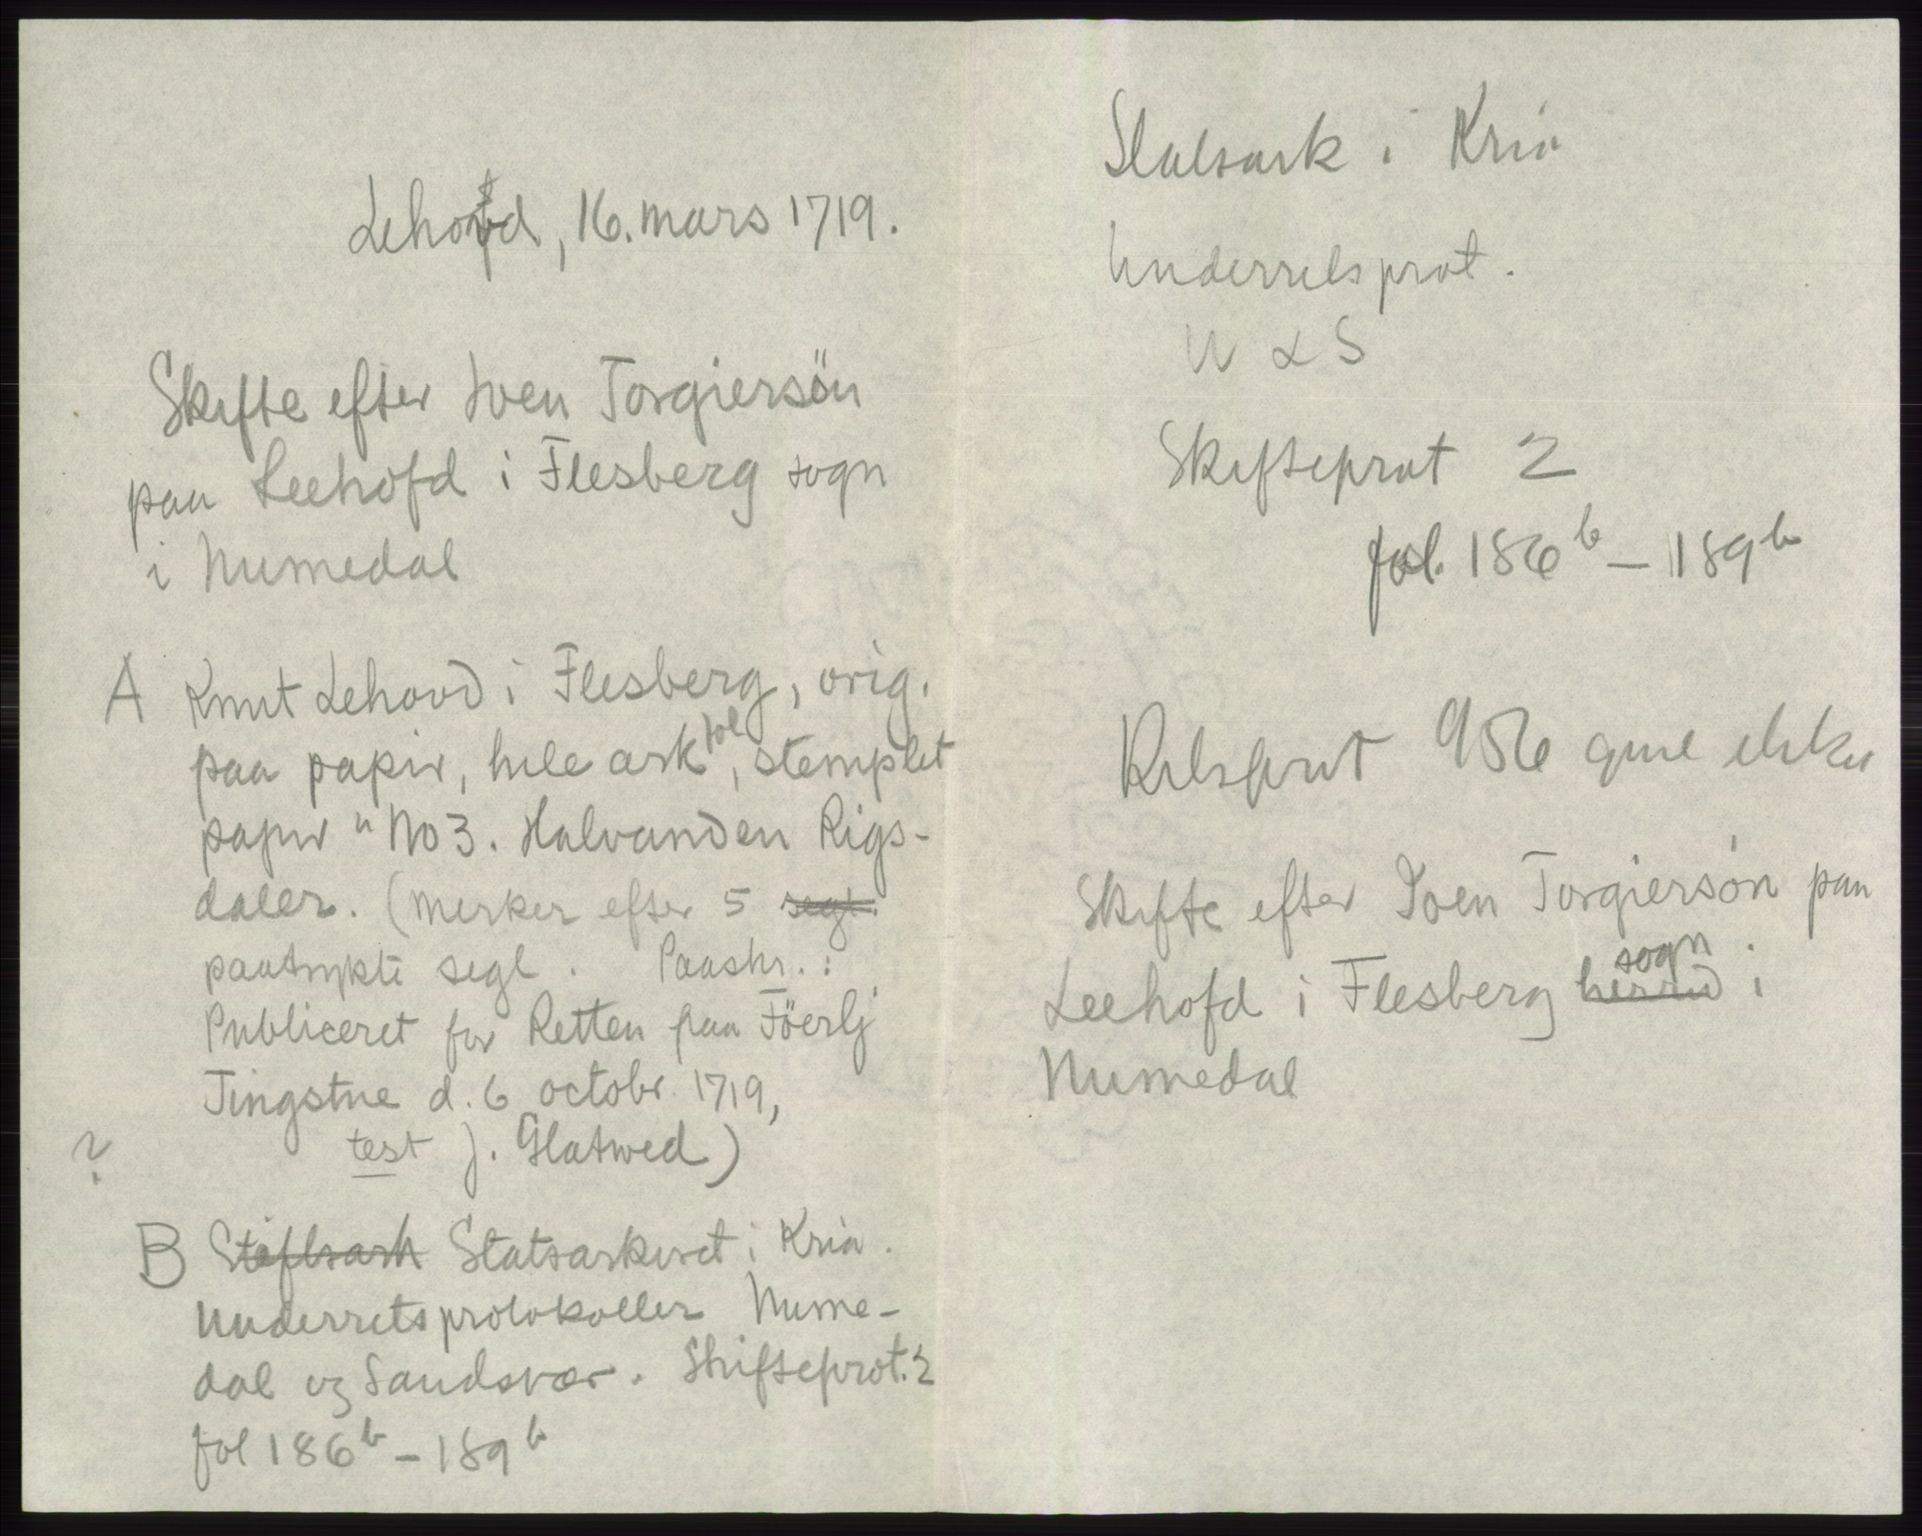 Lehofd, 16. mars 1719.
Skifte efter Iven Torgiersön
paa Leehofd i Flesberg sogn
i Numedal
A Knut Lehovd i Flesberg, orig.
paa papir, hele ark fol, stemplet
papir "No 3. Halvanden Rigs-
daler. (Merker efter 5 segl.
paatrykte segl. Paaskr.:
Publiceret for Retten paa Föerlj
Tingstue d. 6 octobr. 1719,
? test J. Glatwed)
B Statsarkivet i Kria.
Underretsprotokoller Nume-
dal og Sandsvær. Skifteprot. 2
fol 186b – 189b
Statsark i Kria
Underretsprot.
N & S
Skifteprot 2
fol. 186b – 189b
Retsprot 956
Skifte efter Iven Torgiersön paa
Leehofd i Flesberg herred sogn i
Numedal